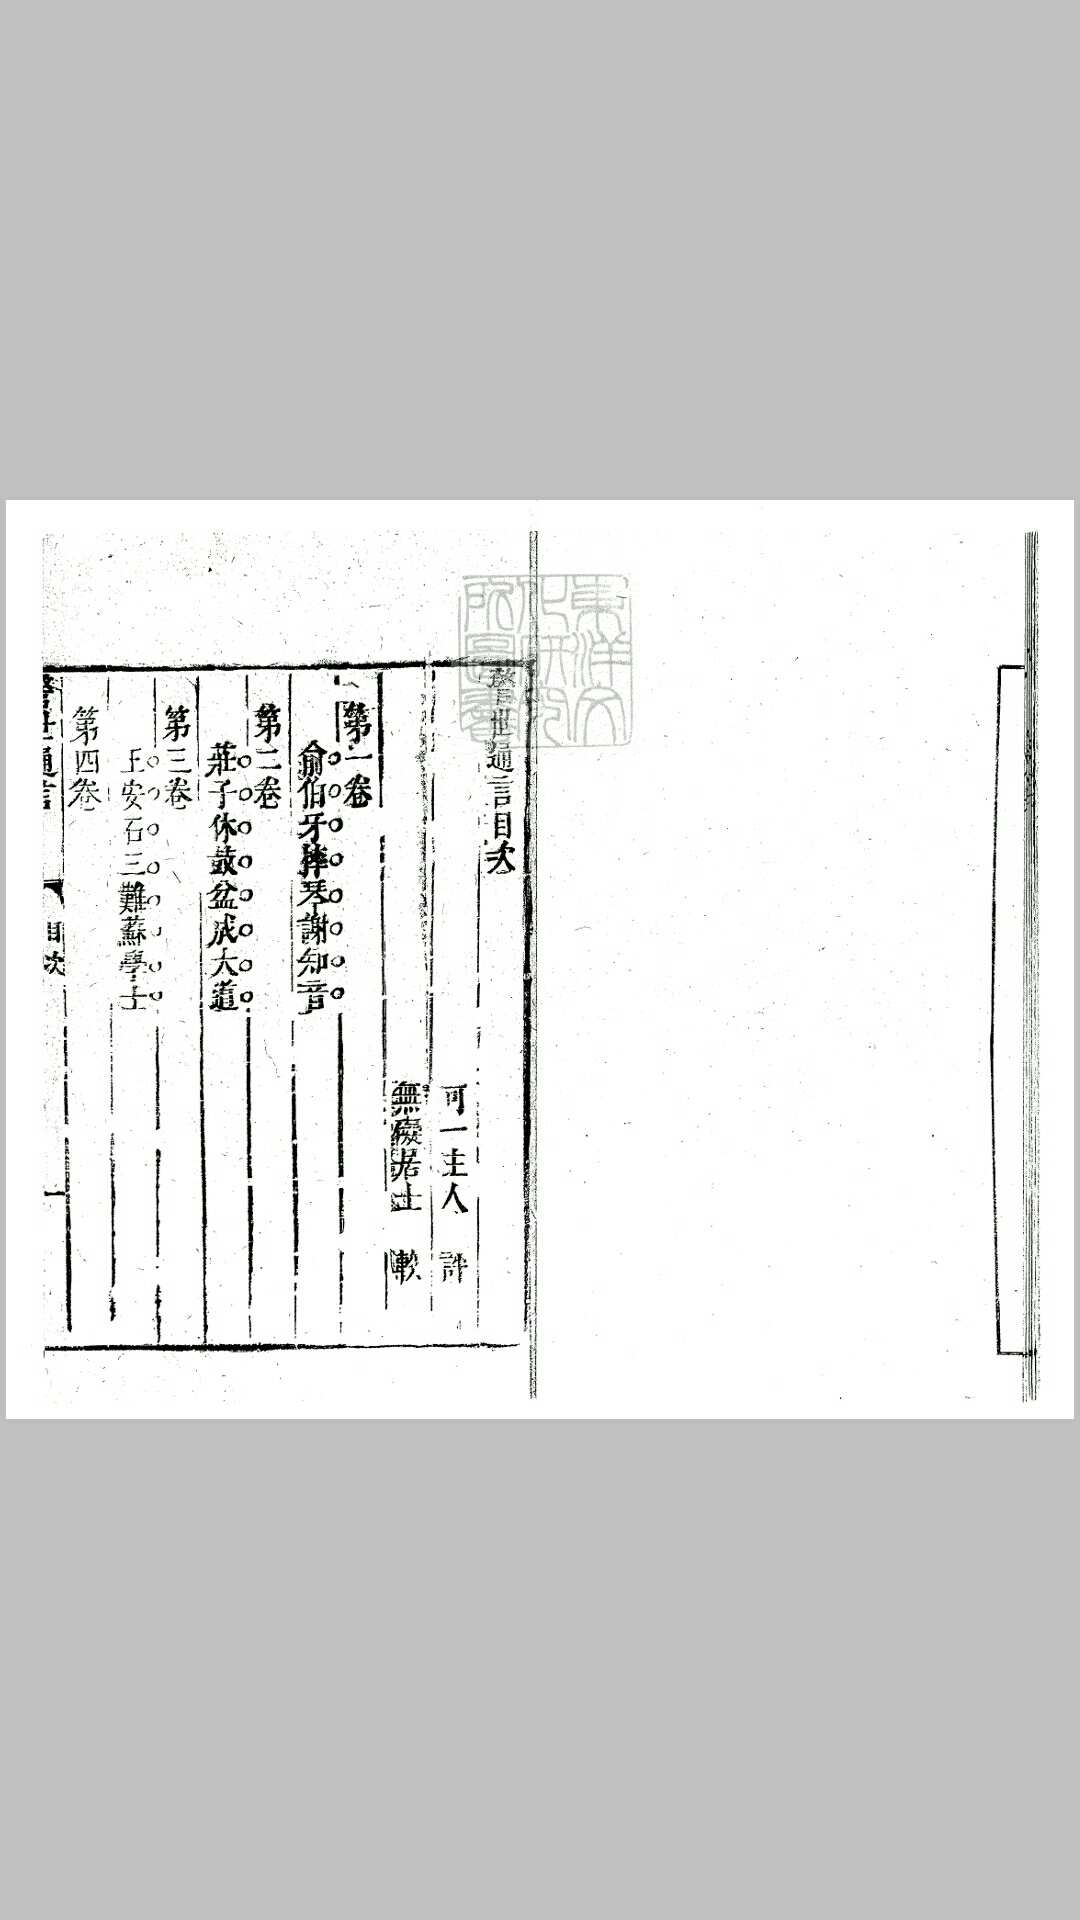 警世通言目次
可一主人　評
無礙居士　較
第一卷
俞伯牙摔琴謝知音
第二卷
莊子休鼓盆成大道
第三卷
王安石三難蘇學士
第四卷
警世通言　目次　一
東洋文化研究所圖書